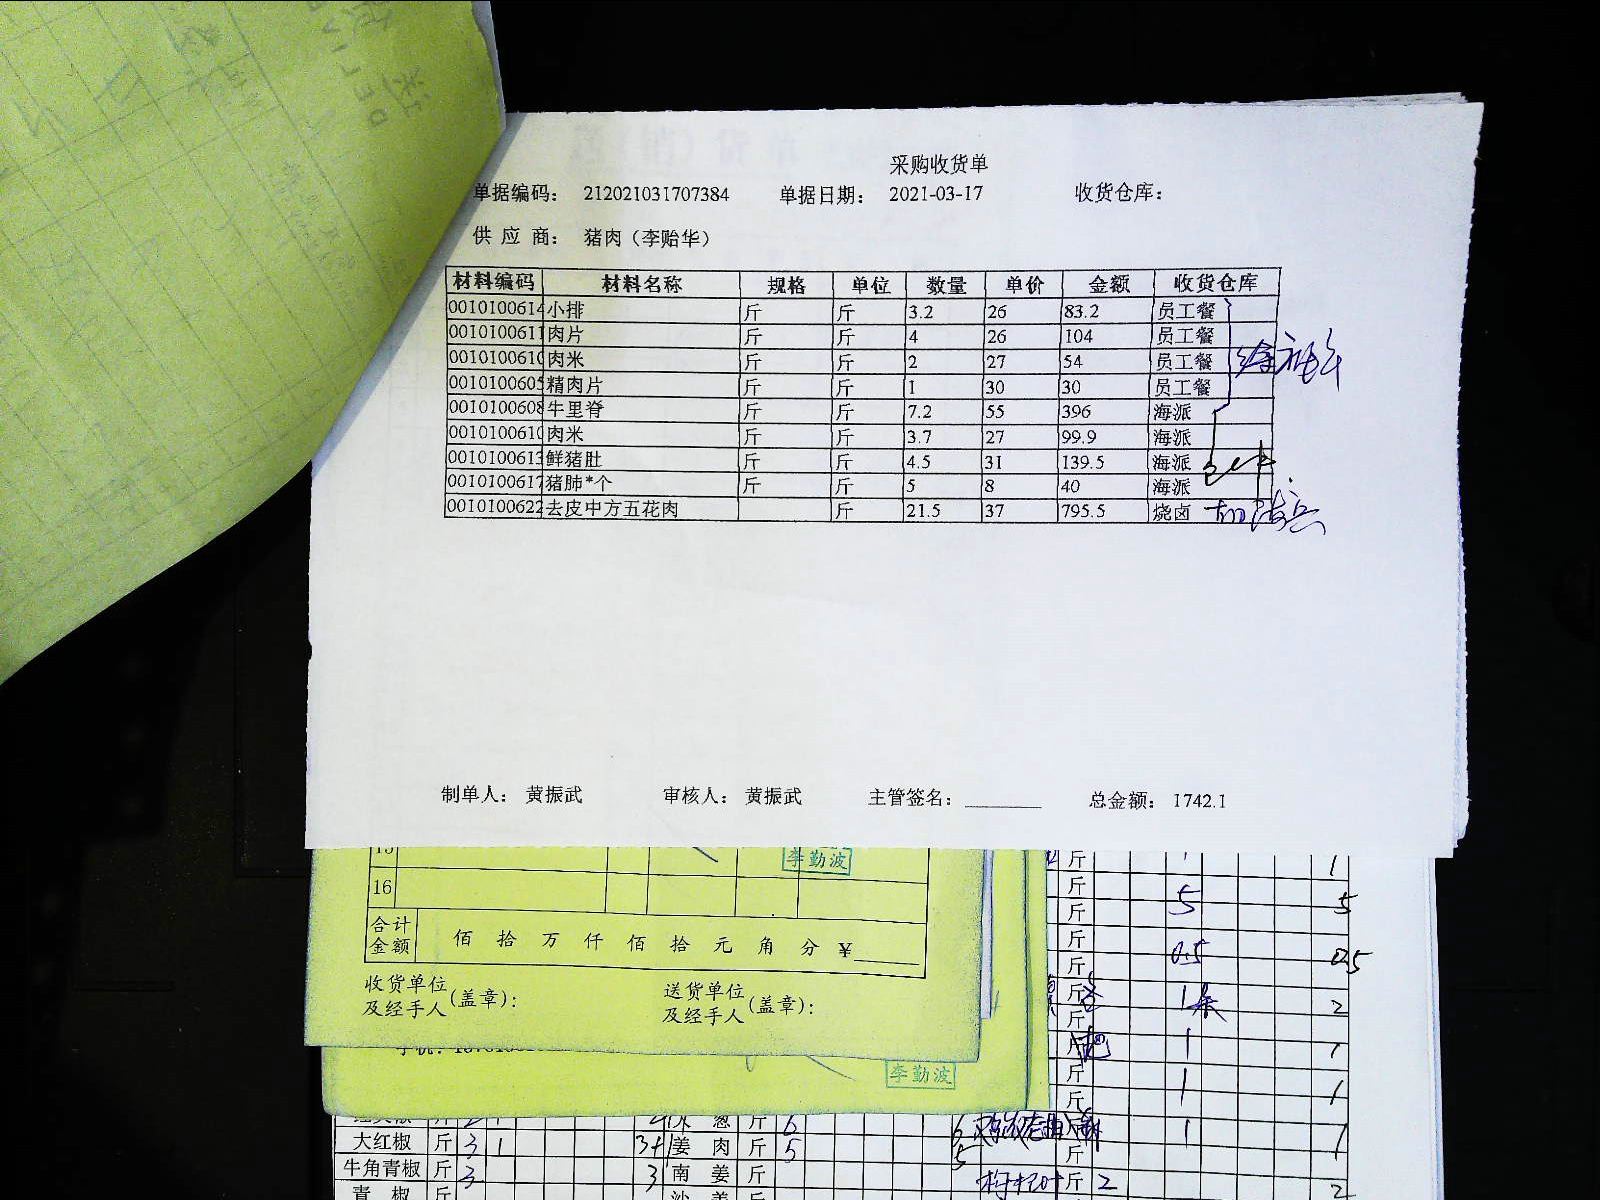 采购收货单
单据编码： 212021031707384 单据日期： 2021-03-17 收货仓库：
供 应 商： 猪肉（李贻华）
材料编码 材料名称 规格 单位 数量 单价 金额 收货仓库
0010100614 小排 斤 斤 3.2 26 83.2 员工餐
0010100611 肉片 斤 斤 4 26 104 员工餐
0010100610 肉米 斤 斤 2 27 54 员工餐
0010100605 精肉片 斤 斤 1 30 30 员工餐
0010100608 牛里脊 斤 斤 7.2 55 396 海派
0010100610 肉米 斤 斤 3.7 27 99.9 海派
0010100613 鲜猪肚 斤 斤 4.5 31 139.5 海派
0010100617 猪肺*个 斤 斤 5 8 40 海派
0010100622 去皮中方五花肉 斤 21.5 37 795.5 烧卤
制单人： 黄振武 审核人： 黄振武 主管签名： 总金额： 1742.1
李勤波
16
合计金额 佰 拾 万 仟 佰 拾 元 角 分 ￥
收货单位及经手人(盖章)： 送货单位及经手人(盖章)：
李勤波
斤 1 1
斤
斤 5 5
斤
斤 0.5 0.5
斤 1条 2
斤
斤 把 1 1
斤
斤 1 1
葱 斤 6 6 1 1
大红椒 斤 3 1 3+1 姜 肉 斤 5 5 斤
牛角青椒 斤 3 3 南 姜 斤 斤 2 2
青 椒 斤 沙 姜 斤